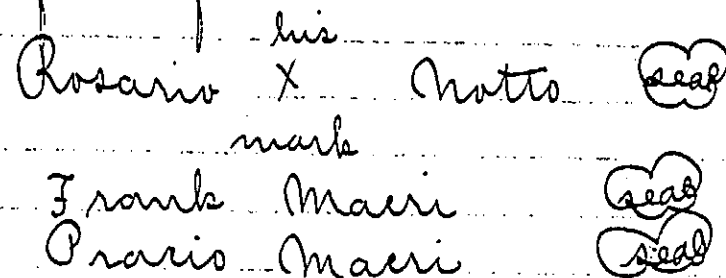 his
Rosario X Notto seal
mark
Frank Macri seal
Macri seal